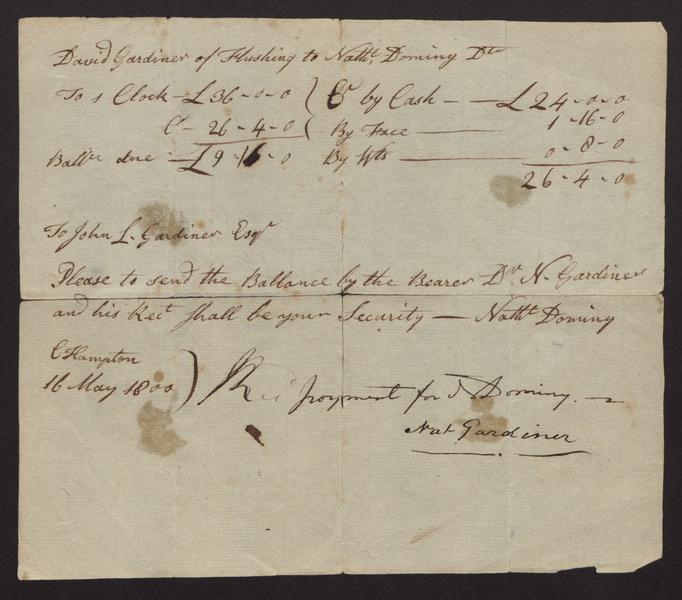 David Gardiner of Flushing to Nathl. Dominy Dr
To 1 Clock - £36-0-0 Cr by Cash - - £24-0-0
Cr - 26-4-0 By Face 1-16-0
Ballce due - £9-16-0 By Wts 0-8-0
26-4-0
To John L. Gardiner Esqr
Please to send the Ballance by the Bearer Dr N. Gardiner
and his Rect shall be your Security - Nathl Dominy
E Hampton
16 May 1800
Recd payment for N Dominy.
Nat Gardiner